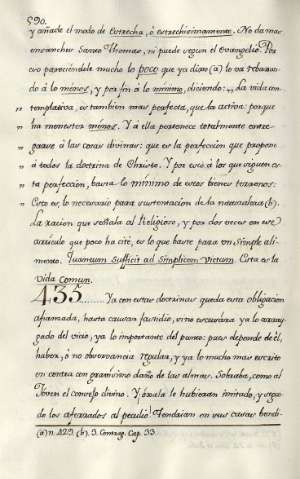 590.
y añade el modo de estrecha, ó estrechisimamente. No da mas
ensanches Santo Thomas, ni puede segun el Evangelio. Por
eso pareciendole mucho lo poco que ya dijo (a) lo va rebajan-
do á lo menos, y por fin á lo minimo, diciendo: La vida con-
templativa, es tambien mas perfecta, que la activa porque
ha menester menos. Y á ella pertenece totalmente entre-
garse á las cosas divinas: que es la perfeccion que propone
á todos la doctrina de Christo. Y por eso á los que siguen es-
ta perfeccion, basta lo minimo de estos bienes terrenos:
Esto es, lo necesario para sustentacion de la naturaleza (b).
La racion que señala al Religioso, y por dos veces en este
articulo que poco ha cité, es lo que baste para un simple ali-
mento. Quantum sufficit ad simplicem victum. Esta es la
Vida Comun.
435....... Ya con estas doctrinas queda esta obligacion
afianzada, hasta causar fastidio, sino escusára ya lo array-
gado del vicio, ya lo importante del punto: pues depende de él,
haber, ó no observancia regular, y ya lo mucho mas escrito
en contra con gravisimo daño de las almas. Sobraba, como al
Joven el consejo divino. Y ojala le hubieran imitado, y sigui-
do los aferrados al peculio! Tendrian en sus casas bendi-
(a) n. 429. (b). 3. Contrag. Cap. 33